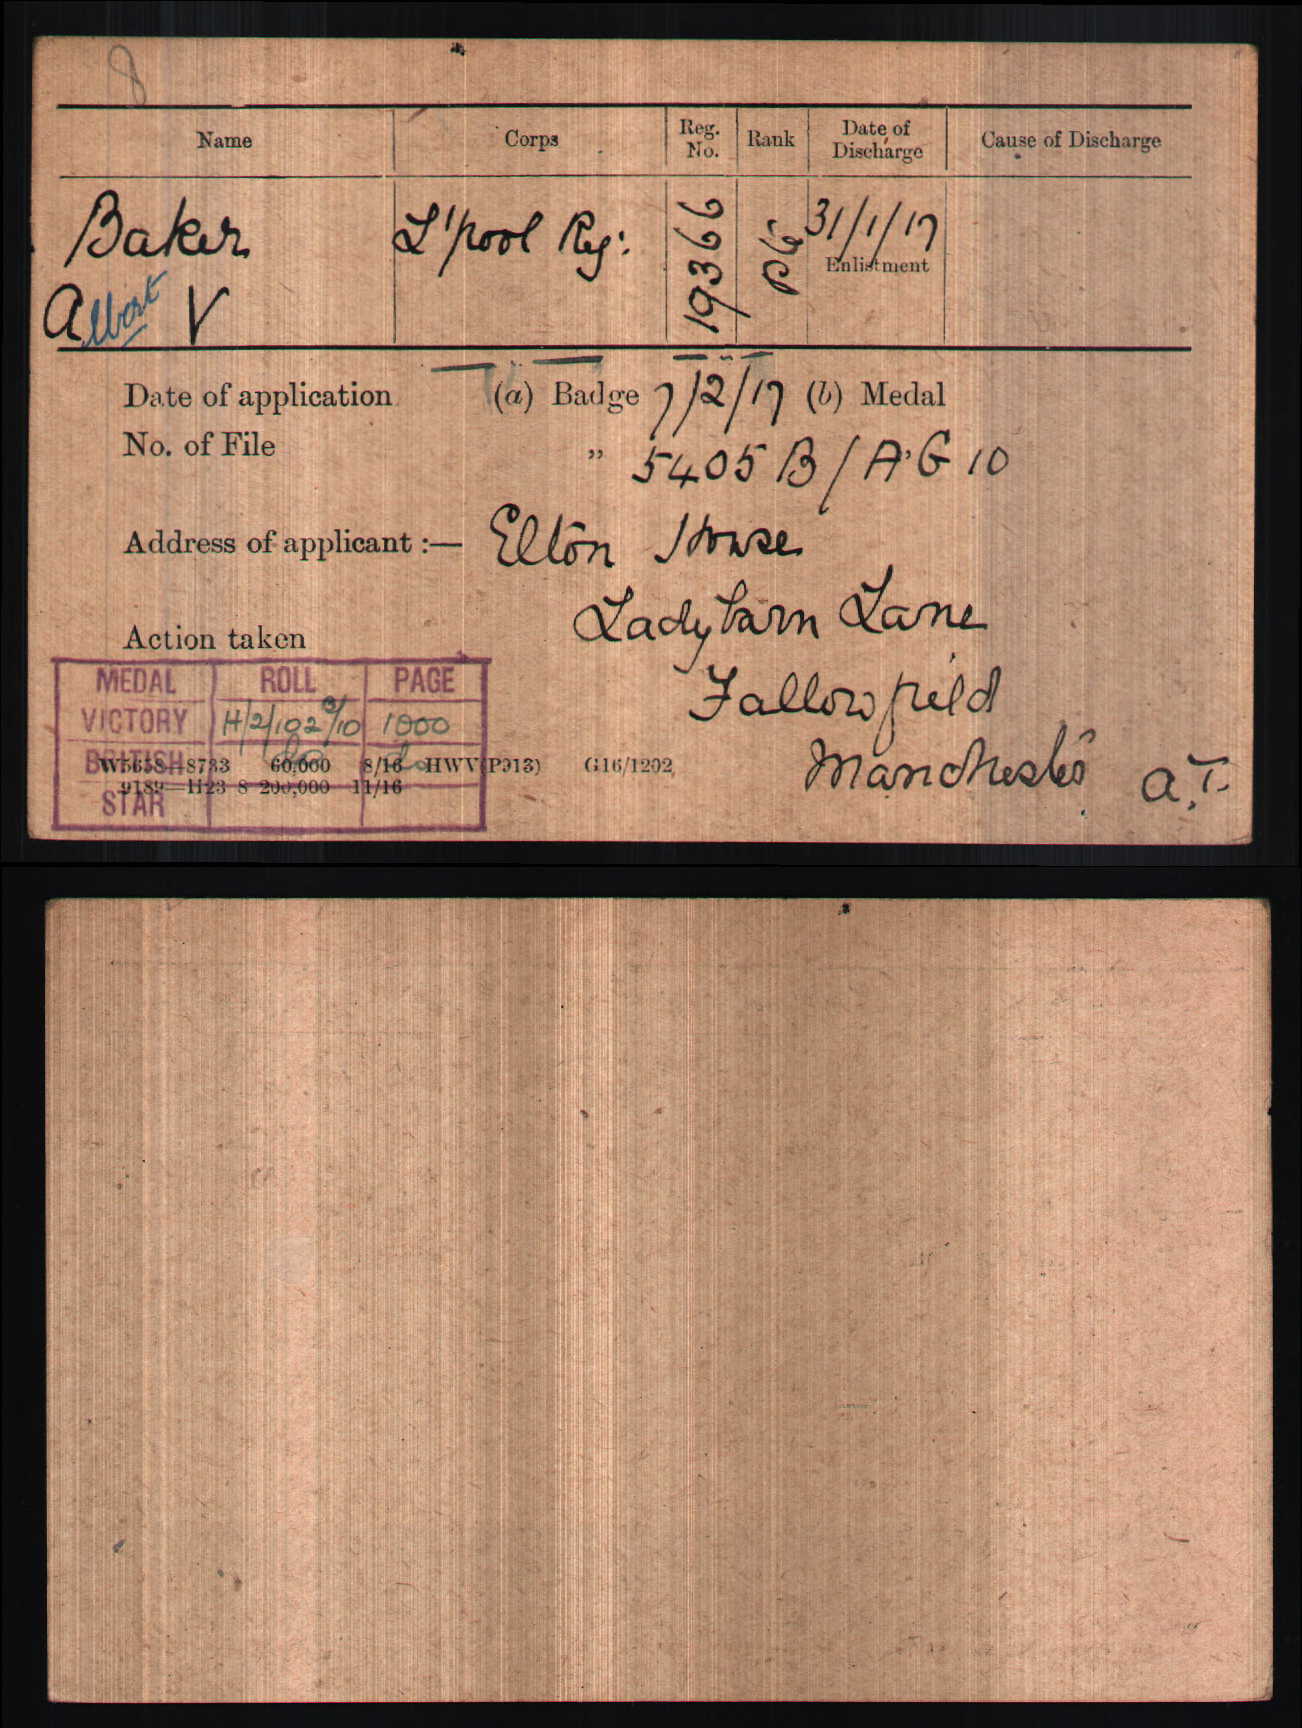 8
Name Corps Reg. No. Rank Date of Discharge Cause of Discharge
Baker L'pool Reg: 19366 Pte 31/1/17
Enlistment
Albert V
Date of application (a) Badge 7/2/17 (b) Medal
No. of File " 5405 B/A.G 10
Address of applicant :— Elton House
Ladybarn Lane
Action taken
Fallowfield
Manchester A.T.
MEDAL ROLL PAGE
VICTORY H/2/102 B10 1000
BRITISH do do
W5658—8733 60,000 8/16 HWV(P913) G16/1202
9189—H23 8 200,000 11/16
STAR